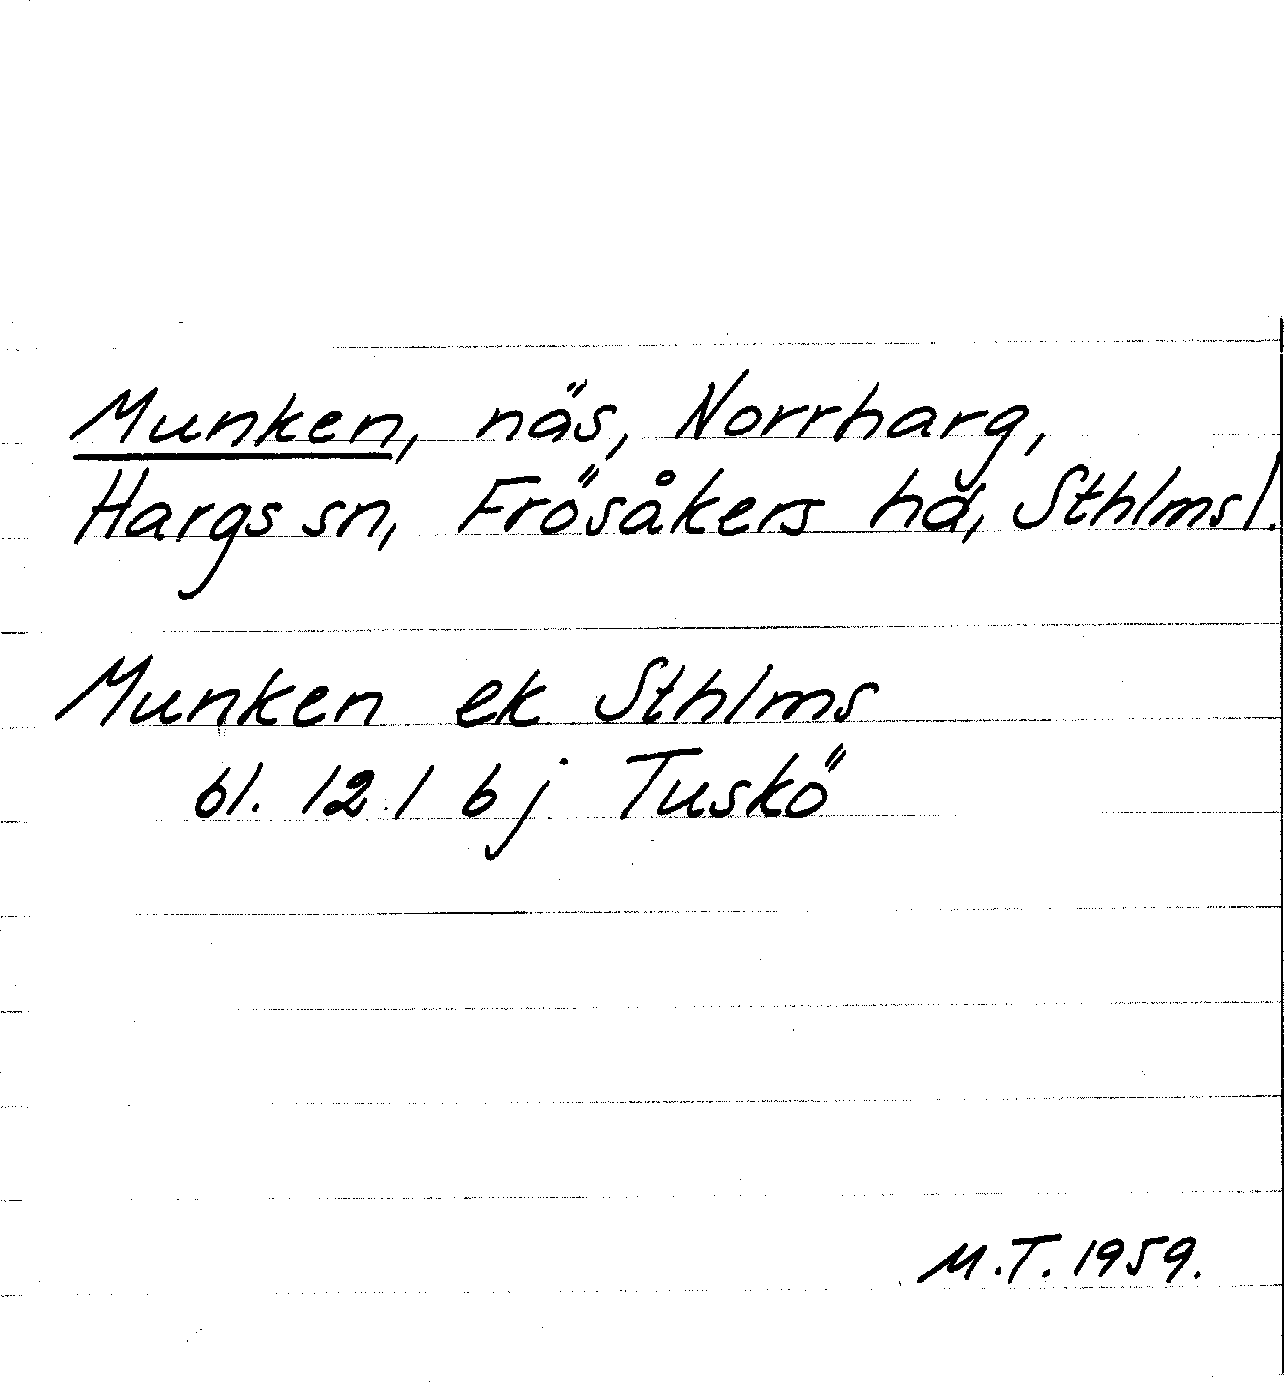 Munken, näs, Norrharg,
Hargs sn, Frösåkers hd, Sthlmsl.
Munken ek Sthlms
bl. 12.1 bj Tuskö
M.T. 1959.